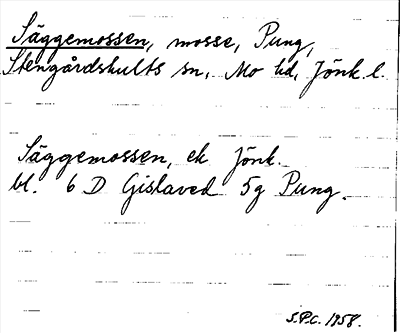 Säggemossen, mosse, Pung,
Stengårdshults sn, Mo hd, Jönk. l.
Säggemossen, ek Jönk.
bl. 6 D Gislaved 5g Pung.
S.P.C. 1958.